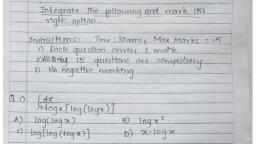 Integrate the following and mark the
right option.
Instructions: Time: 30 mins, Max Marks: 15
1) Each question carries 1 mark
2) All 15 questions are compulsory
3) No negative marking.
Q.1) ∫ dx / x logx [log(logx)]
A) log(logx) B) log x².
C) log[log(logx)] D) x·logx